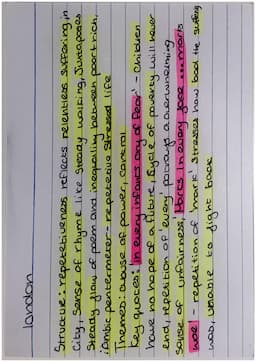 london
Structure: repetitiveness reflects relentless suffering in
city, Sense of rhyme like steady walking, Juxtaposes
Steady flow of poem and inequality between poor + rich,
iambic pentermeter - repetative stressed life
Themes: abuse of power, control
Key quotes: 'In every infants cry of fear' - children
have no hope of a future, cycle of poverty will never
end, repetition of 'every' portrays a overwhelming
sense of unfairness, 'Marks in every face ... marks
woe' - repetition of 'mark' stresses how bad the suffering
was, unable to fight back